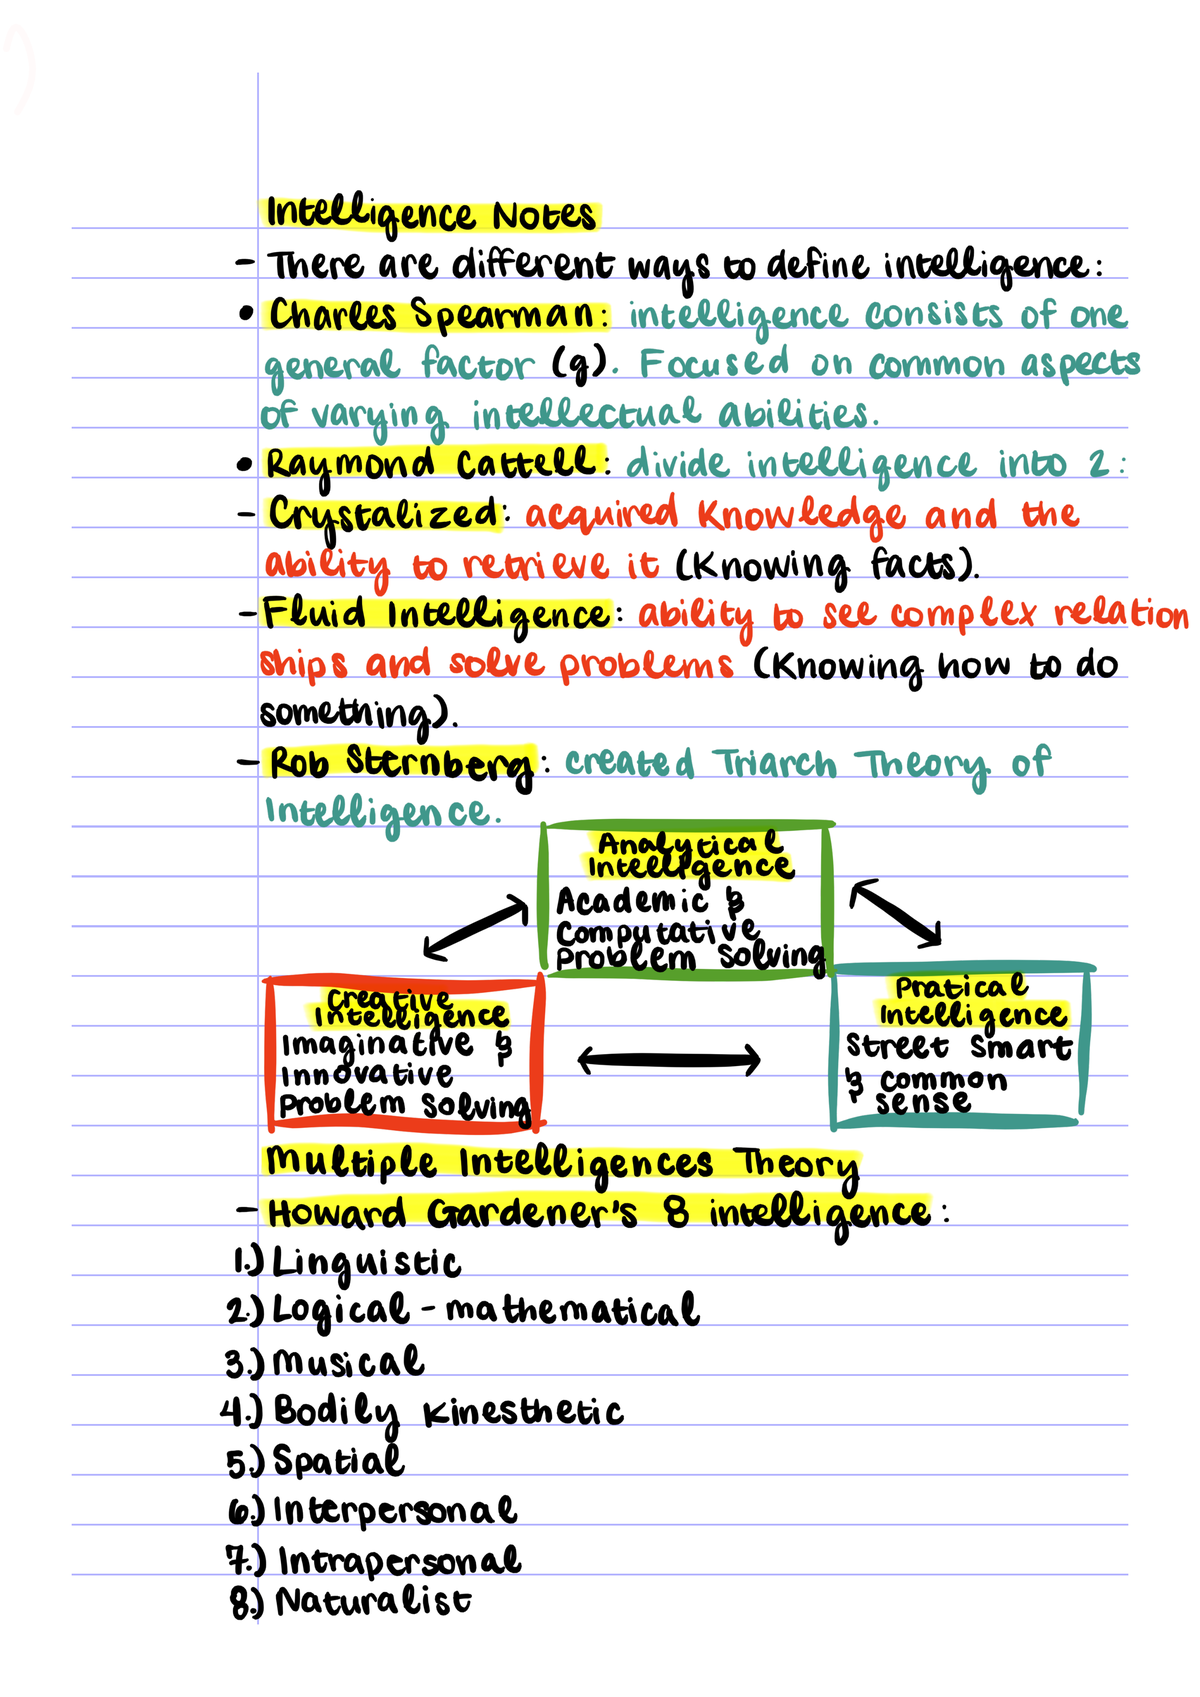 Intelligence Notes
- There are different ways to define intelligence:
• Charles Spearman: intelligence consists of one
general factor (g). Focused on common aspects
of varying intellectual abilities.
• Raymond Cattell: divide intelligence into 2:
- Crystalized: acquired knowledge and the
ability to retrieve it (knowing facts).
- Fluid Intelligence: ability to see complex relation
ships and solve problems (knowing how to do
something).
- Rob Sternberg: created Triarch Theory of
Intelligence.
Analytical
Intelligence
Academic &
Computative
Problem Solving
Creative
Intelligence
Imaginative &
Innovative
Problem Solving
Pratical
Intelligence
Street Smart
& common
sense
Multiple Intelligences Theory
- Howard Gardener's 8 intelligence:
1.) Linguistic
2.) Logical - mathematical
3.) Musical
4.) Bodily Kinesthetic
5.) Spatial
6.) Interpersonal
7.) Intrapersonal
8.) Naturalist